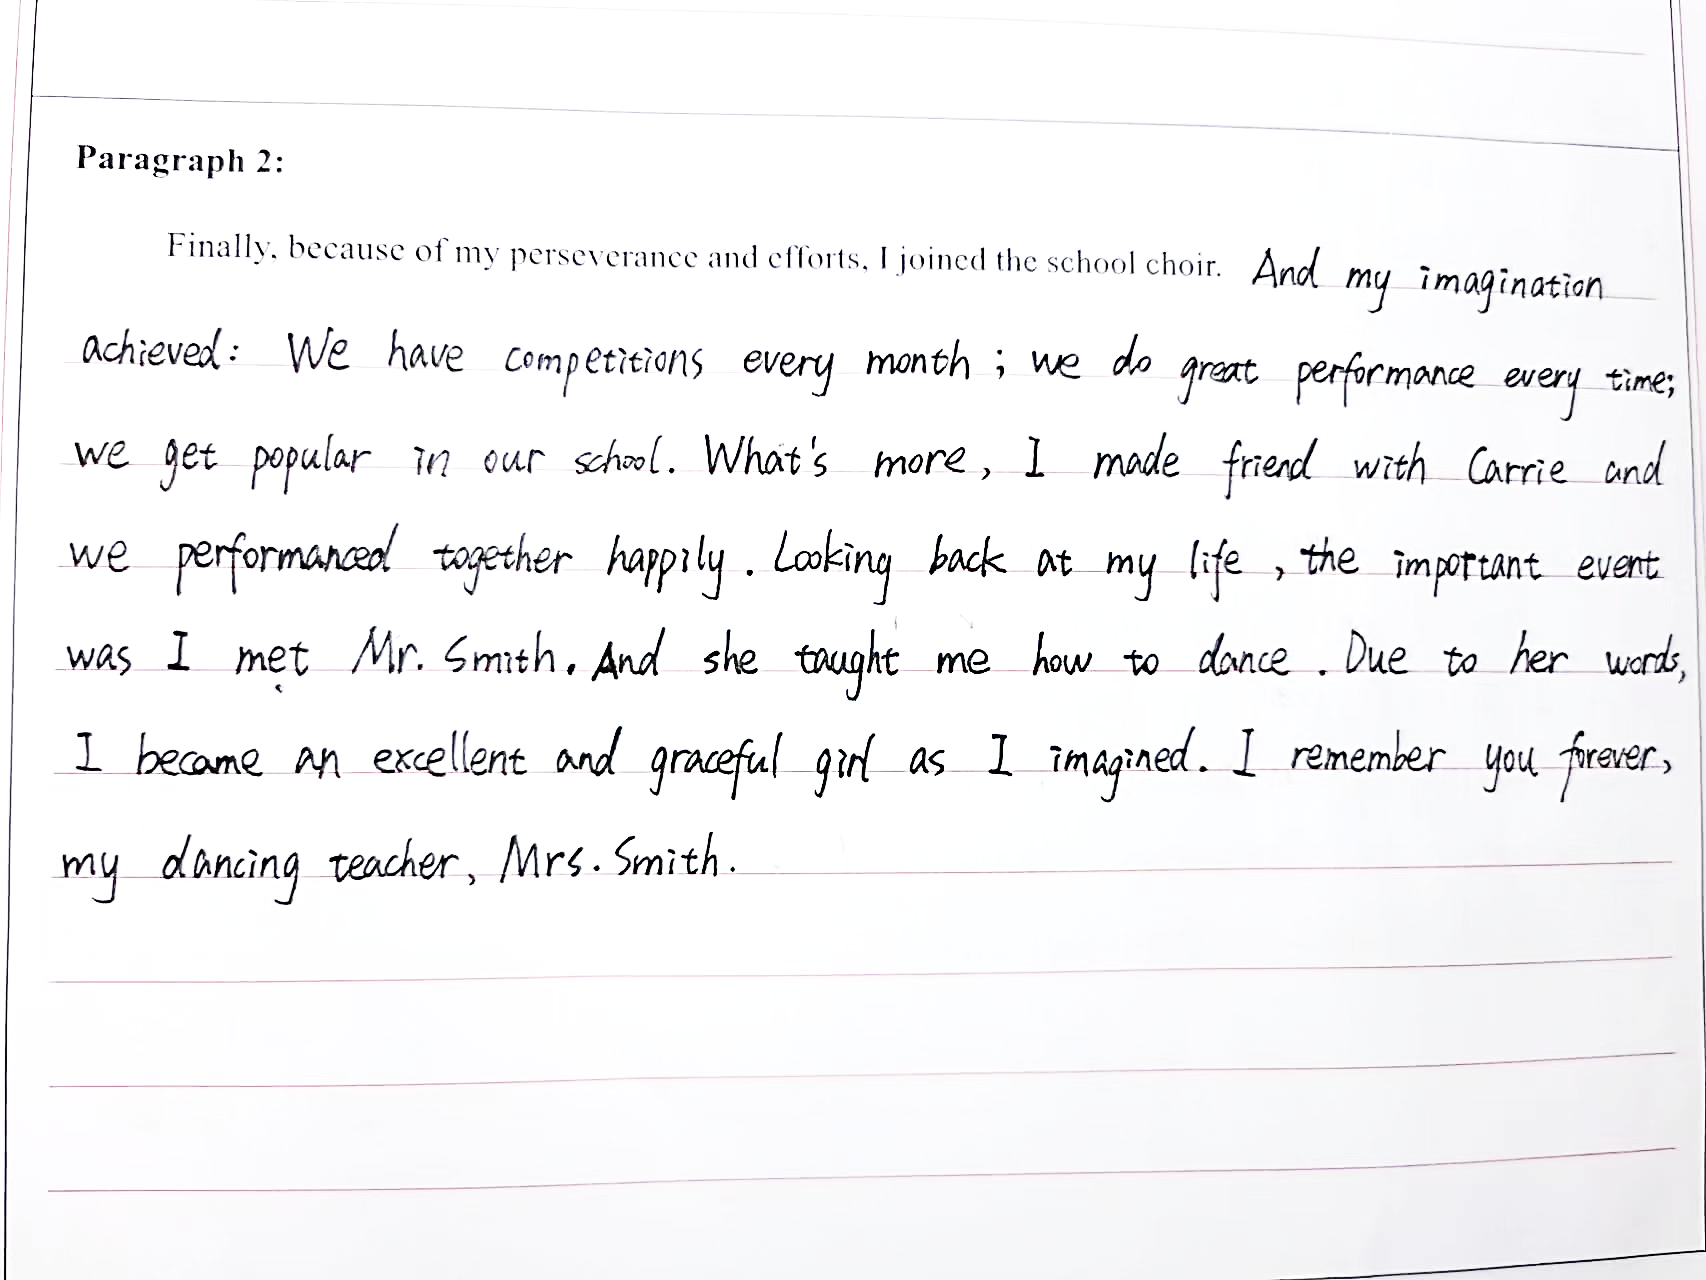 Paragraph 2:
Finally, because of my perseverance and efforts, I joined the school choir. And my imagination
achieved: We have competitions every month; we do great performance every time;
we get popular in our school. What's more, I made friend with Carrie and
we performanced together happily. Looking back at my life, the important event
was I met Mr. Smith. And she taught me how to dance. Due to her words,
I became an excellent and graceful girl as I imagined. I remember you forever,
my dancing teacher, Mrs. Smith.